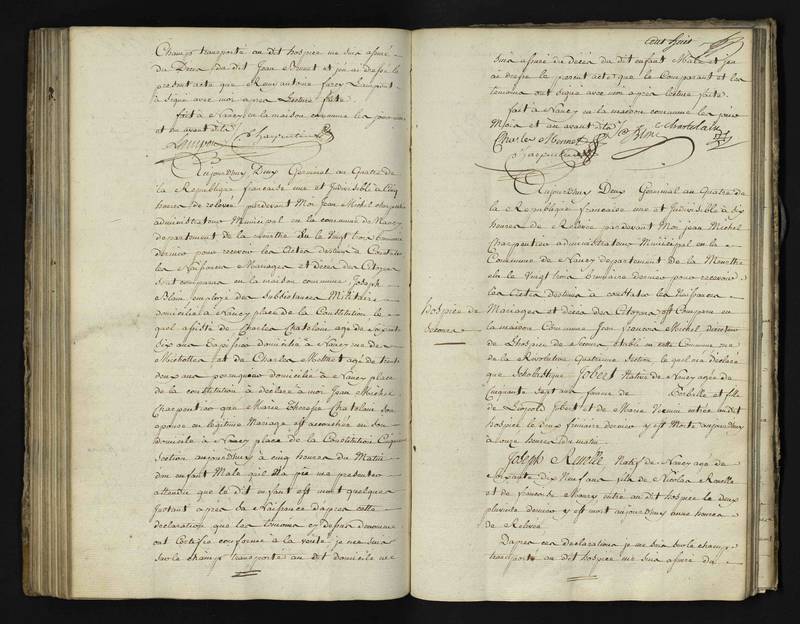 Champ transporté au dit hospice me suis assuré
du Décès du dit Jean et j'en ai dressé le
présent acte que
a signé avec moi après Lecture faite
fait à Nancy en la maison commune les jour
et an avant dits
Charpentier
Aujourd'huy Deux Germinal au Quatre de
la République française une et Indivisible à Cinq
heures de relevé pardevant Moi Jean Michel Charpentier
administrateur Municipal en la commune de Nancy
département de la Meurthe élu le Vingt trois brumaire
dernier pour recevoir les Actes destinés à Constater
les Naissances Mariages et Décès des Citoyens
sont comparus en la maison commune Joseph
Blain employé des Subsistances Militaires
domicilié à Nancy place de la Constitution le
quel assisté de Charles Chatelain agé de soixante
Six ans domicilié à Nancy rue des
Michottes et de Charles agé de trente
deux ans perruquier domicilié à Nancy place
de la constitution à déclaré à moi Jean Michel
Charpentier que Marie Therese Chatelain son
epouse en légitime Mariage est accouchée en son
domicile à Nancy place de la Constitution
Section aujourd'huy à cinq heures du Matin
d'un enfant Male qu'il n'a pu me presenter
attendu que le dit enfant est mort quelques
Instant après sa Naissance d'après cette
déclaration que les témoins cy dessus dénommés
ont Certifié conforme à la vérité je me suis
sur le champ transporté au dit domicile me
Cent huit
suis assuré du décès du dit enfant Male et j'en
ai dressé le présent acte que le Comparant et les
témoins ont signé avec moi après lecture faite
fait à Nancy en la maison commune les jour
Mois et an avant dits
Chatelain
Charles
Charpentier
Aujourd'huy Deux Germinal au Quatre de
la République française une et Indivisible à Six
heures de Relevée pardevant Moi jean Michel
Charpentier administrateur Municipal en la
Commune de Nancy département de la Meurthe
élu le Vingt trois brumaire dernier pour recevoir
les Actes Destinés à constater les Naissances
hospice de
Mariages et décès des Citoyens est Comparu en
la maison Commune Jean francois Michel directeur
de L'hospice de établi en cette Commune rue
de la Révolution Quatrieme Section le quel m'a déclaré
que Scholastique Jobert Native de Nancy agée de
Cinquante sept ans femme de et fille
de Léopold Jobert et de Marie entrée au dit
hospice le deux frimaire dernier y est Morte aujourd'huy
à onze heures du matin
Joseph Natif de Nancy agé de
Soixante dix Neuf ans fils de Nicolas
et de francoise entré au dit hospice le deux
pluviose dernier y est mort aujourd'huy à une heure
de Relevée
D'après ces déclarations je me suis sur le champ
transporté au dit hospice me suis assuré du